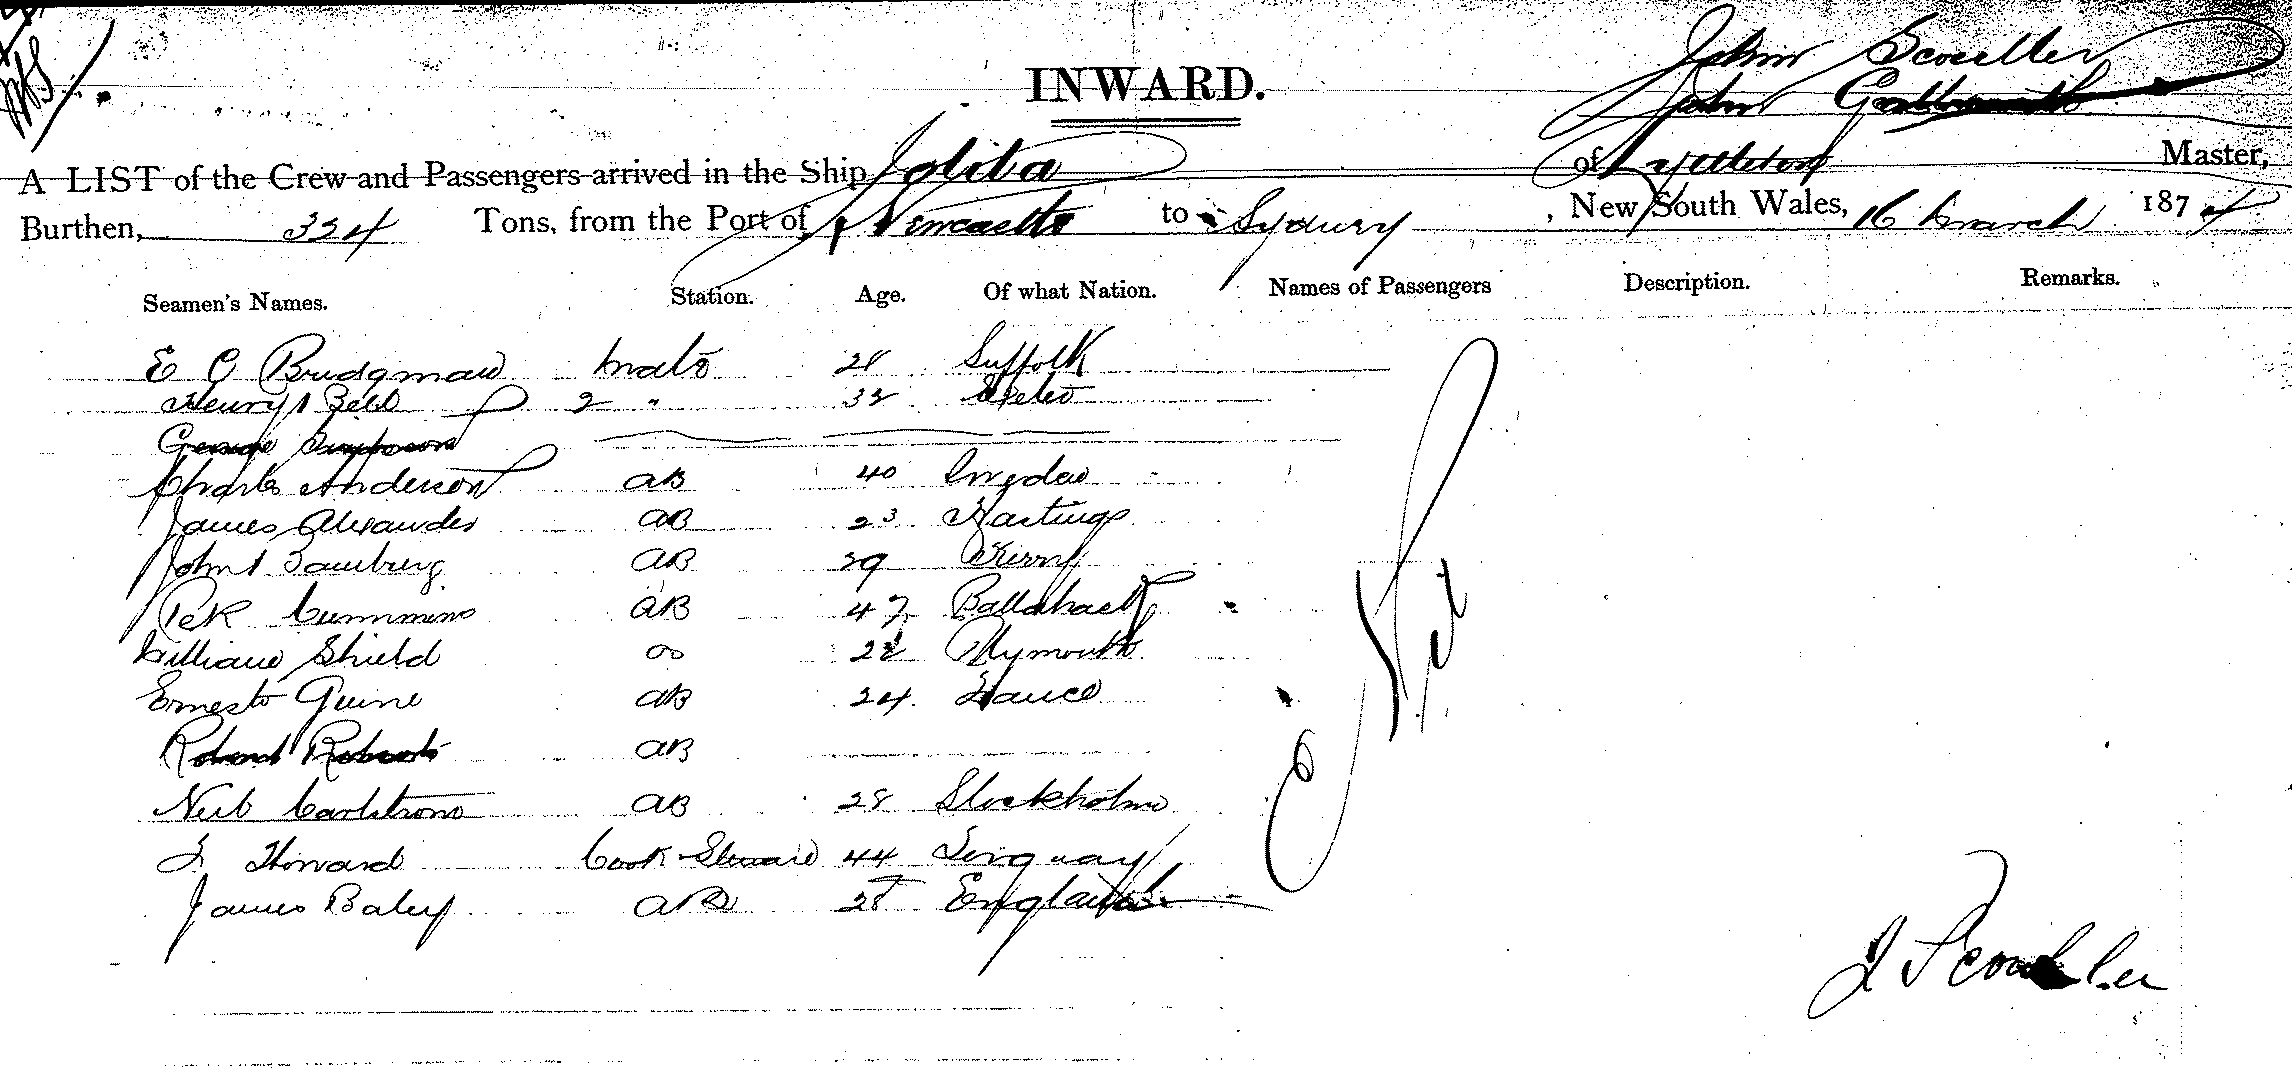 John Scoullar
John
INWARD.
A LIST of the Crew and Passengers arrived in the Ship of Lyttleton Master,
Burthen, 324 Tons, from the Port of Newcastle to Sydney , New South Wales, 16 March 1874
Seamen's Names. Station. Age. Of what Nation. Names of Passengers Description. Remarks.
E C Bridgman Mate 28 Suffolk
Henry Bell 2 " 32
George Simpson
Charles Anderson AB 40 Sweden
James Alexander AB 23 Hastings
John AB 29
Cummins AB 47
William Shield OS Plymouth
Ernest AB 24 France
Robert Roberts AB
Carlstrom AB 28 Stockholm
Howard Cook Steward 44 Torquay
James Baley AB 28 England
Nil
J